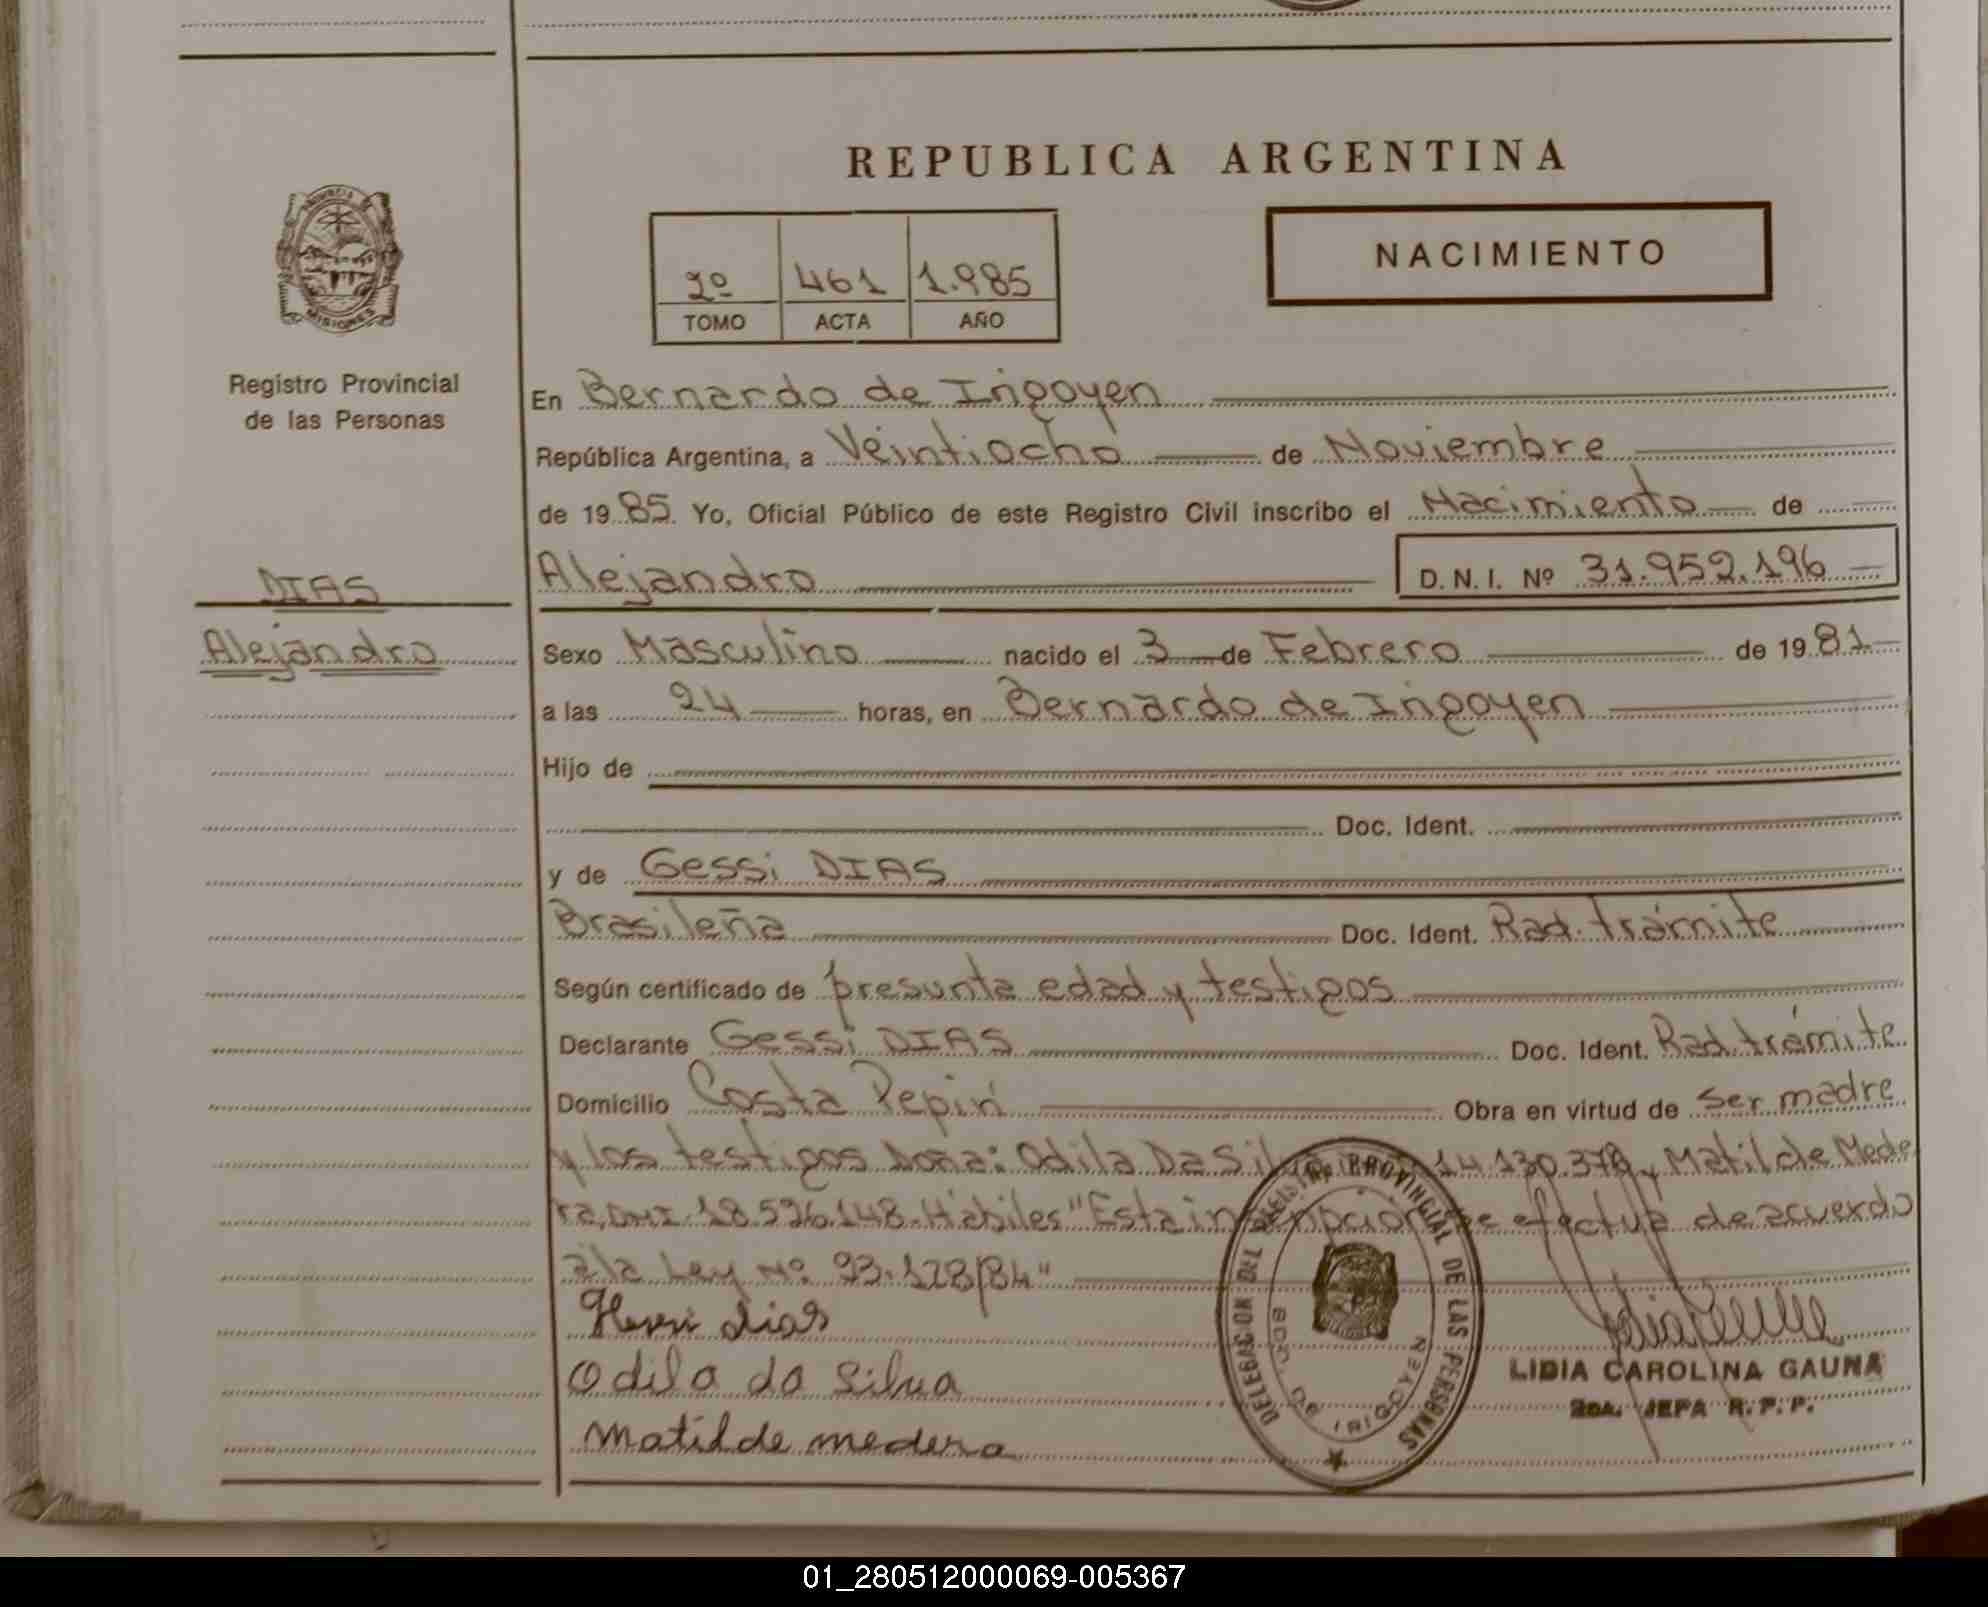 REPUBLICA ARGENTINA
NACIMIENTO
2º 461 1.985
TOMO ACTA AÑO
PROVINCIA DE
MISIONES
Registro Provincial
de las Personas
DIAS
Alejandro
En Bernardo de Irigoyen
República Argentina, a Veintiocho de Noviembre
de 19 85. Yo, Oficial Público de este Registro Civil inscribo el Nacimiento de
Alejandro D.N.I. Nº 31.952.196
Sexo Masculino nacido el 3 de Febrero de 19 81
a las 24 horas, en Bernardo de Irigoyen
Hijo de
Doc. Ident.
y de Gessi DIAS
Brasileña Doc. Ident. Rad. trámite
Según certificado de presunta edad y testigos
Declarante Gessi DIAS Doc. Ident. Rad. trámite
Domicilio Costa Pepiri Obra en virtud de Ser madre
y los testigos Doña: Odila Da Silva 14.130.379, Matilde Mede
ra, DNI. 18.526.148. Hábiles "Esta inscripción se efectúa de acuerdo
a la Ley Nº 23.128/84"
dias
Odila da Silva
Matilde medera
DELEGACION DEL REGISTRO PROVINCIAL DE LAS PERSONAS
BDO. DE IRIGOYEN
LIDIA CAROLINA GAUNA
2DA. JEFA R.P.P.
01_280512000069-005367